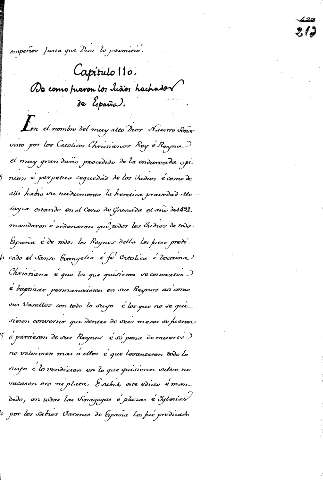 217
que Dios lo permitió.
Capítulo 110.
De como fueron los Judios hechados
de España.
En el nombre del muy alto Dios Nuestro Señor
visto por los Catolicos Christianos Rey é Reyna
el muy gran daño procedido de la endurecida opi
nion é perpetua ceguedad de los Judios é como de
alli habia su la heretica pravedad
estando en el Cerco de Granada el año de 1492.
mandaron é ordenaron que todos los Judios de toda
España é de todos los Reynos della les fuese predi
cado el Santo Evangelio é fé Catolica é Doctrina
Christiana é que los que quisiesen se convertir
é baptizar permaneciesen en sus Reynos asi como
sus Vasallos con todo lo suyo é los que no se qui
siesen convertir que dentro de seis meses se fuesen
é partiesen de sus Reynos é só pena de muerte
no volviesen mas á ellos é que levasen todo lo
suyo é lo vendiesen en lo que quisiesen
oro ni plata. este edicto é man
dado, en todas las Synagogas é plazas é Iglesias
por los sabios Varones de España les fué predicado